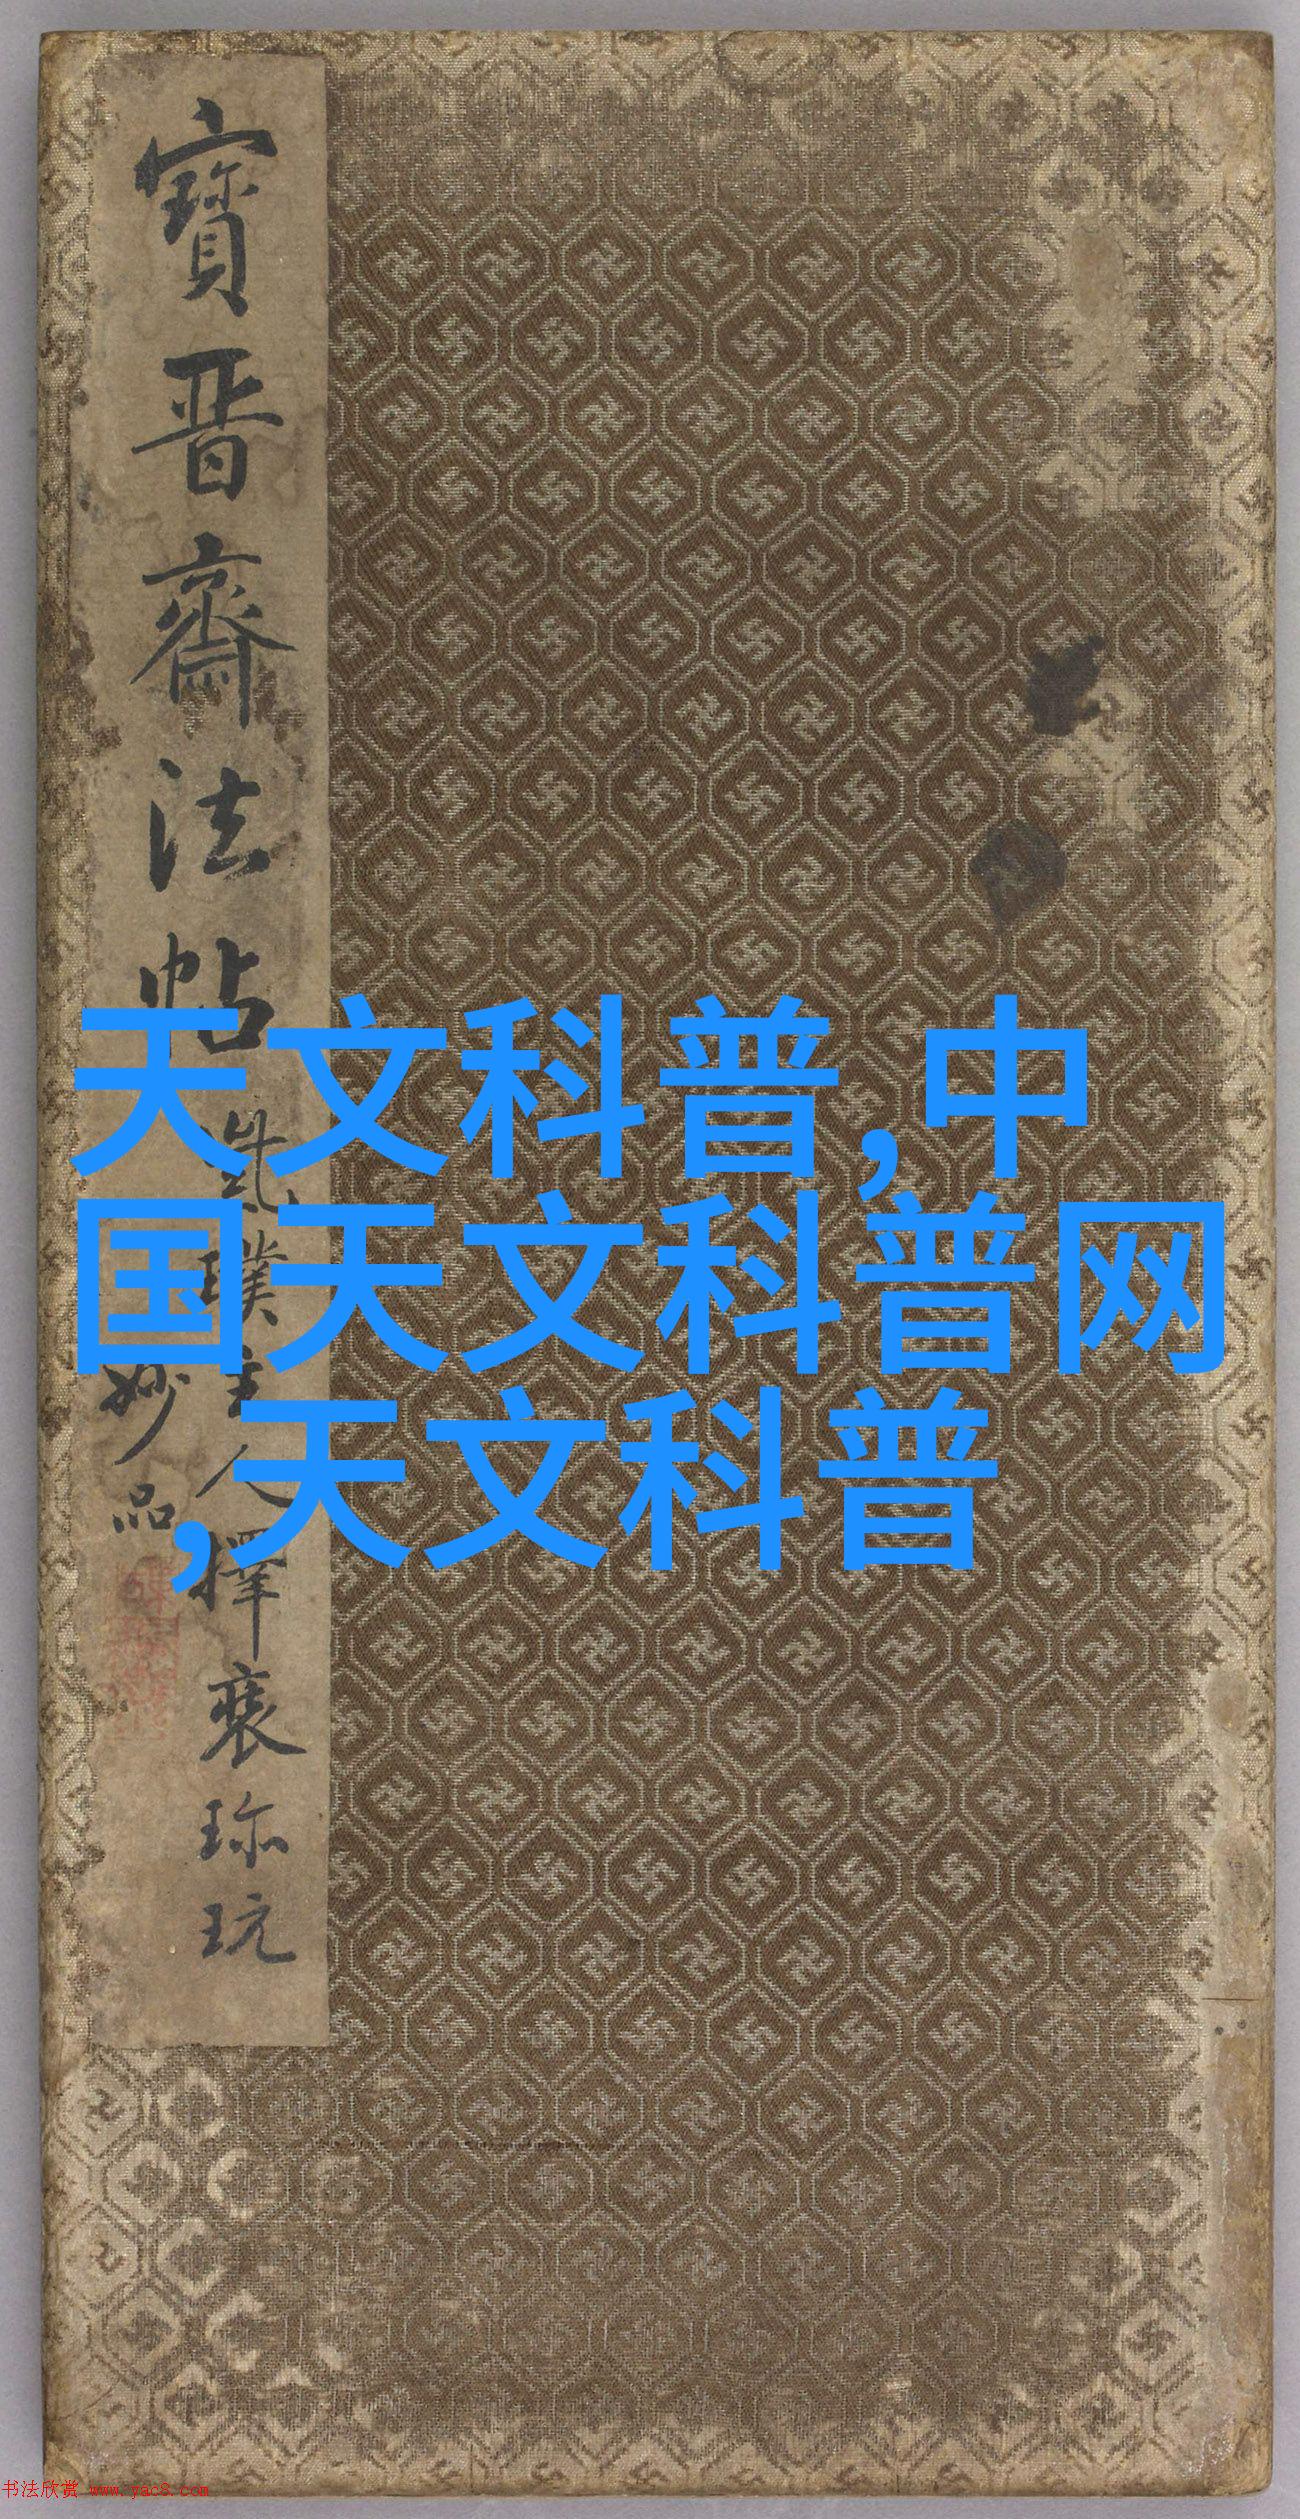 寶晋齋法帖
璞主人擇裘珎玩
妙品
天文科普,中
国天文科普网
,天文科普
书法欣赏 www.yac8.com